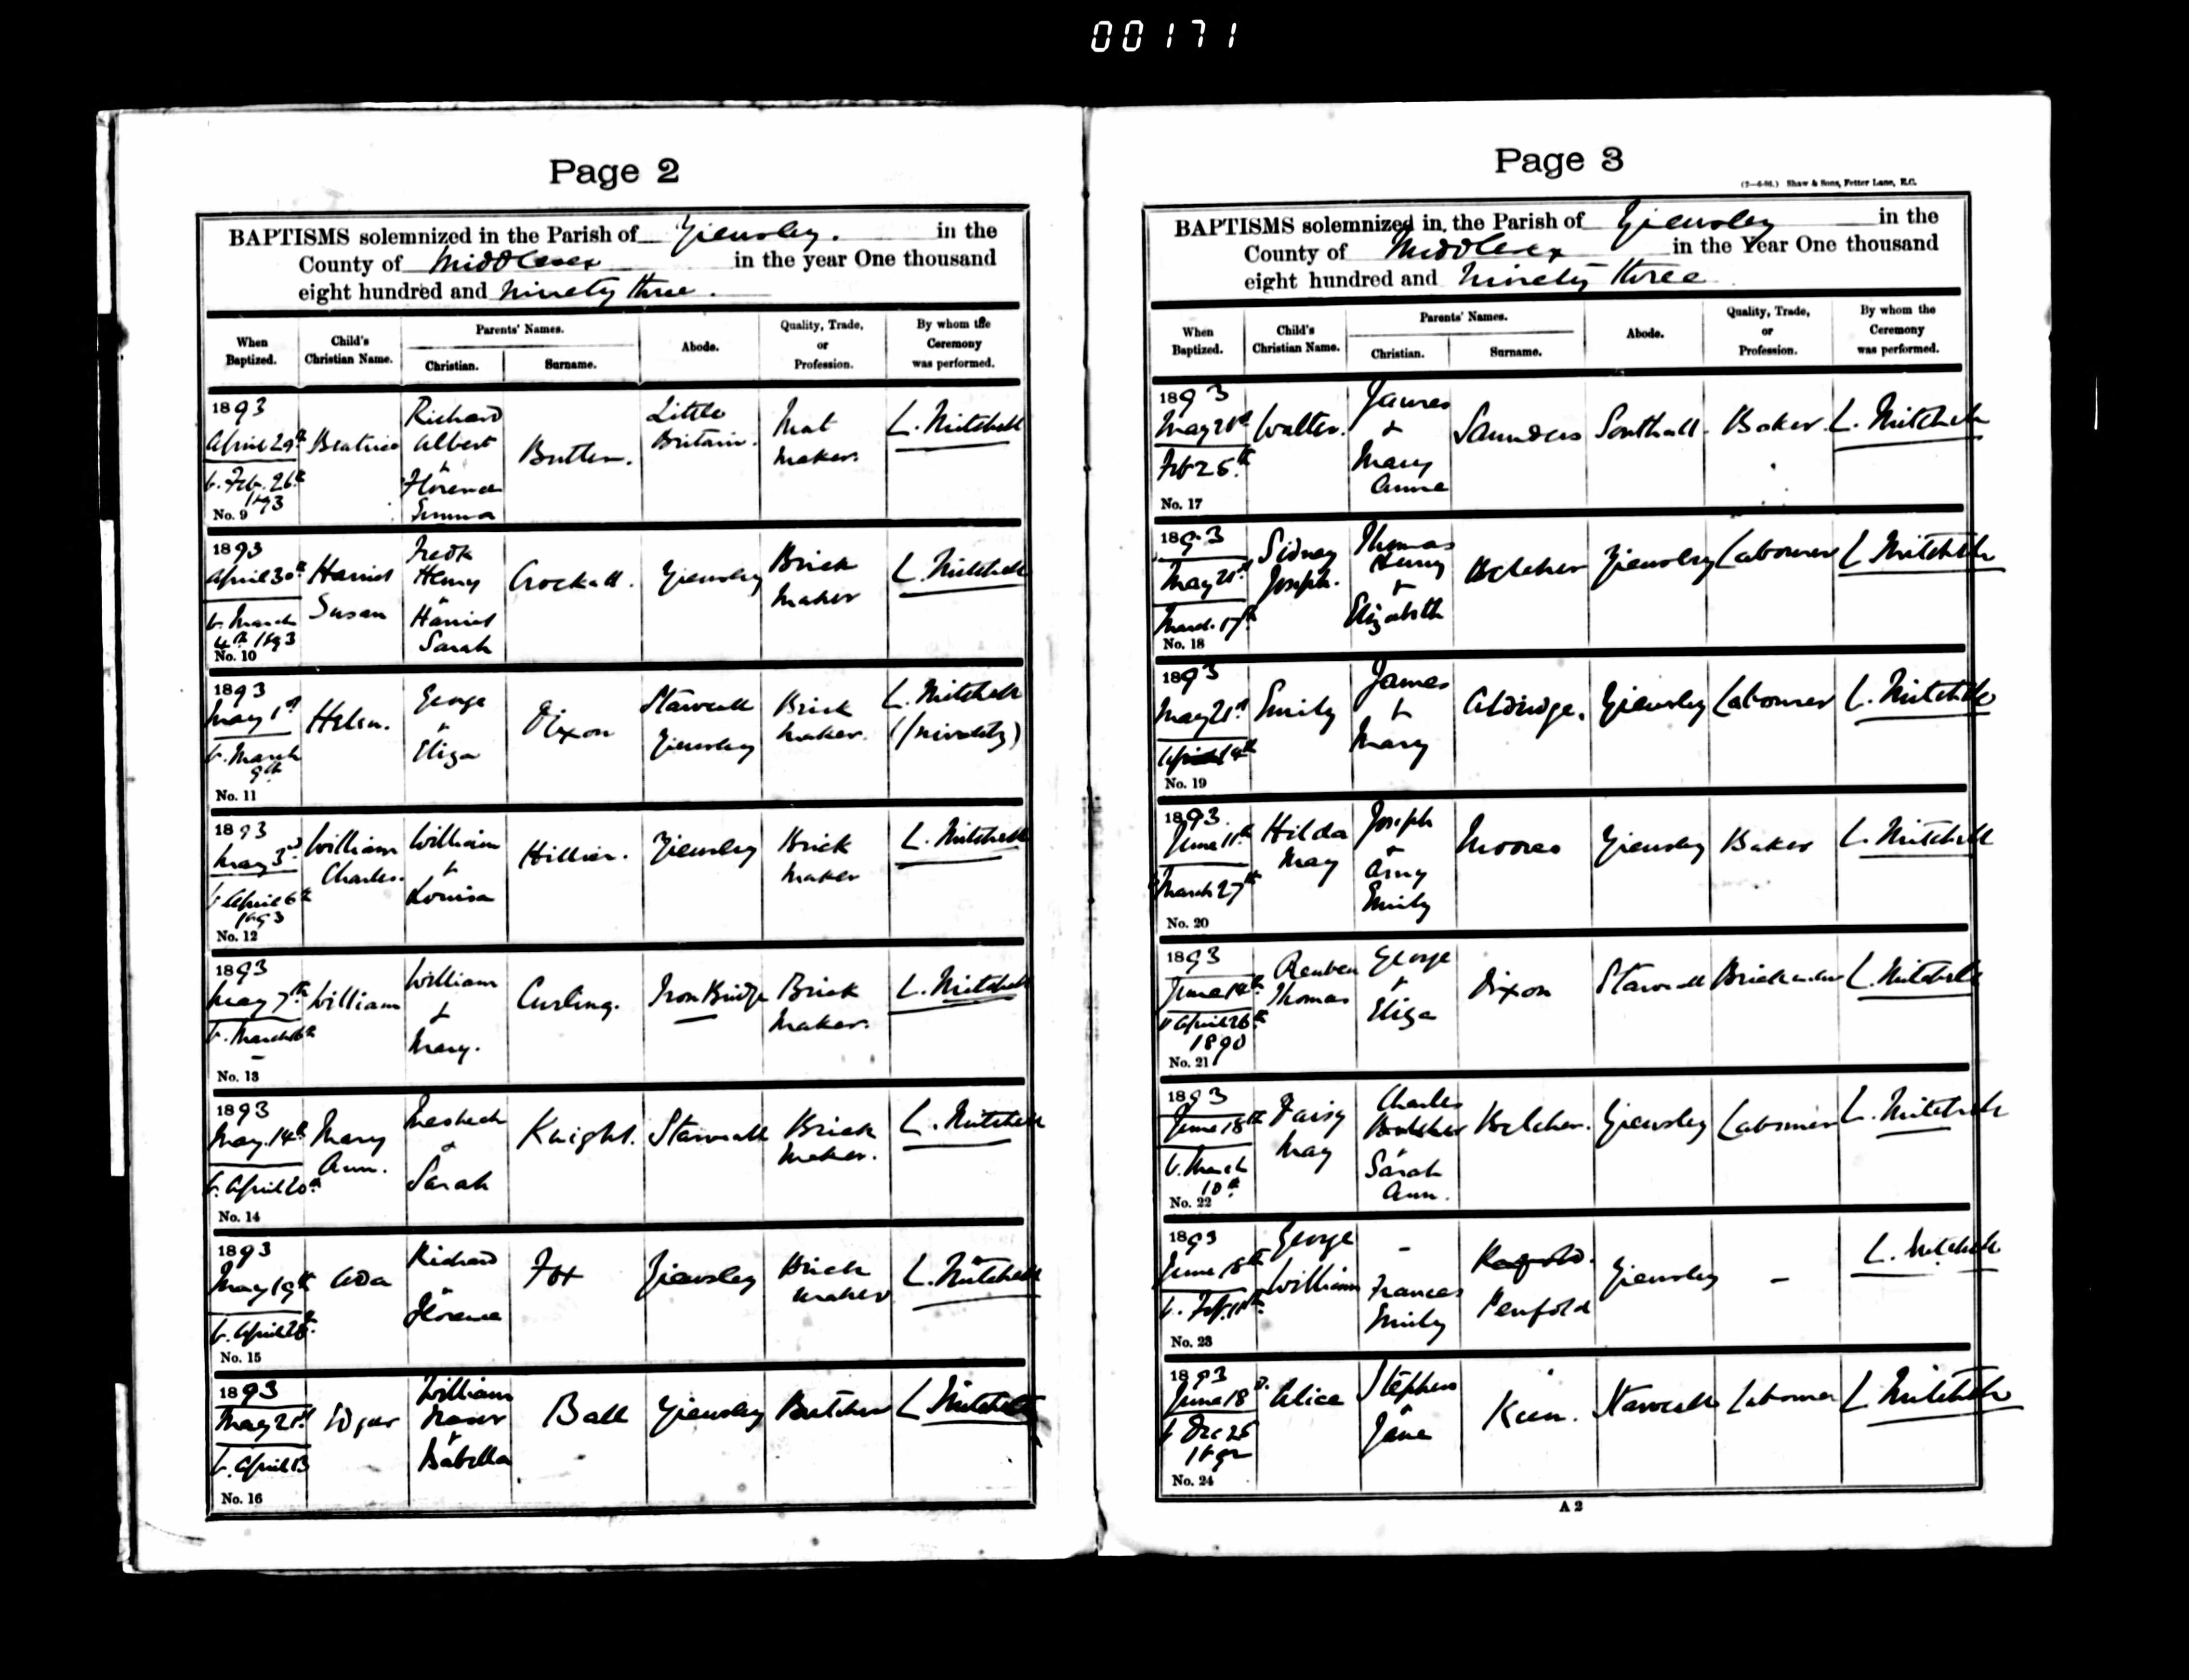 00171
Page 2
BAPTISMS solemnized in the Parish of Yiewsley. in the
County of Middlesex in the year One thousand
eight hundred and ninety three.
When Baptized. Child's Christian Name. Parents' Names. Christian. Surname. Abode. Quality, Trade, or Profession. By whom the Ceremony was performed.
1893 April 29th b. Feb. 26th 1893 No. 9 Beatrice Richard Albert & Florence Emma Butler. Little Britain. Mat Maker. L. Mitchell
1893 April 30th b. March 4th 1893 No. 10 Harriet Susan Fredk Henry & Harriet Sarah Crockall. Yiewsley Brick Maker L. Mitchell
1893 May 1st b. March 9th No. 11 Helen. George & Eliza Dixon Starveall Yiewsley Brick Maker. L. Mitchell (privately)
1893 May 3rd b. April 6th 1893 No. 12 William Charles. William & Louisa Hillier. Yiewsley Brick Maker L. Mitchell
1893 May 7th b. March 6th No. 13 William William & Mary. Curling. Iron Bridge Brick Maker. L. Mitchell
1893 May 14th b. April 20th No. 14 Mary Ann. Meshech & Sarah Knight. Starveall Brick Maker. L. Mitchell
1893 May 19th b. April 28th No. 15 Ada Richard & Florence Fox Yiewsley Brick Maker L. Mitchell
1893 May 21st b. April 13 No. 16 Edgar William & Isabella Ball Yiewsley Butcher L. Mitchell
Page 3
(7—6-86.) Shaw & Sons, Fetter Lane, E.C.
BAPTISMS solemnized in the Parish of Yiewsley in the
County of Middlesex in the Year One thousand
eight hundred and ninety three
When Baptized. Child's Christian Name. Parents' Names. Christian. Surname. Abode. Quality, Trade, or Profession. By whom the Ceremony was performed.
1893 May 21st Feb 25th No. 17 Walter. James & Mary Anne Saunders Southall. Baker. L. Mitchell
1893 May 21st March 17th No. 18 Sidney Joseph. Thomas Henry & Elizabeth Belcher Yiewsley Labourer L. Mitchell
1893 May 21st April 14th No. 19 Emily James & Mary Aldridge. Yiewsley Labourer L. Mitchell
1893. June 11th March 27th No. 20 Hilda May Joseph & Amy Emily Moores Yiewsley Baker L. Mitchell
1893 June 14th b April 26th 1890 No. 21 Reuben Thomas George & Eliza Dixon Starveall Brickmaker L. Mitchell
1893 June 18th b. March 10th No. 22 Daisy May Charles Belcher & Sarah Ann. Belcher. Yiewsley Labourer L. Mitchell
1893 June 18th b. Feb. 11th No. 23 George William - Frances Emily Penfold Yiewsley - L. Mitchell
1893 June 18th b Dec 25 1892 No. 24 Alice Stephen & Jane Keen. Starveall Labourer L Mitchell
A 2